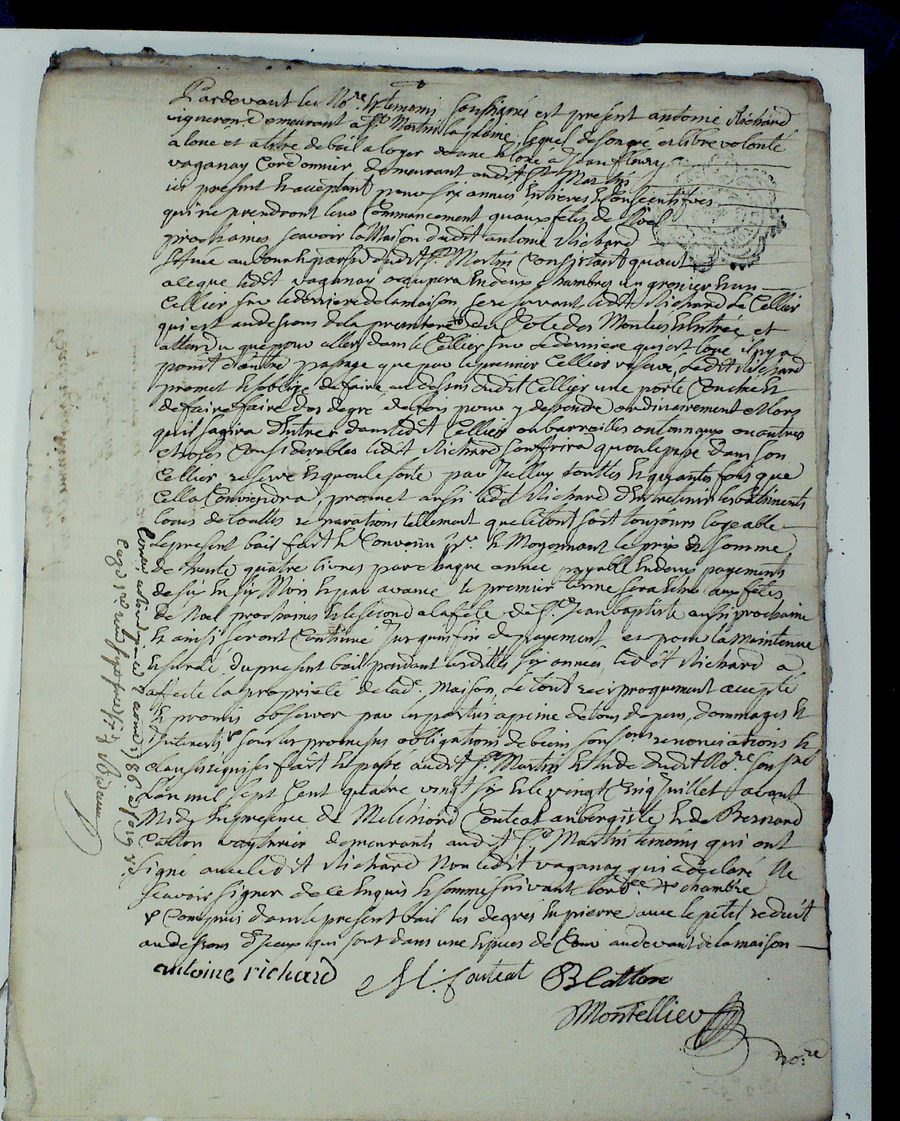 Pardevant les No.re & temoins soussignés est present antoine Richard
vigneron demeurant a S.t Martin la plaine, lequel de son gré et libre volonté
a loué et a titre de bail a loyer donne et loue a Jean fleury
vaganay Cordonnier demeurant audit S.t Martin
icy present et acceptant pour six années entieres & Consecutives
qui ne prendront leur Commancement qu'aux fetes de Noel
prochaines scavoir la Maison dudit antoine Richard
située au bourg paroisse dudit S.t Martin Consistant quant
a ce que ledit vaganay occupera en deux Chambres un grenier & un
Cellier sur le derriere de la maison se reservant ledit Richard le Cellier
qui est au dessous de la premiere du Coté des Montées & Entrée et
attendu que pour aller dans le Cellier sur le derriere qui est loué il n'y a
point d'autre passage que par le premier Cellier reservé, ledit Richard
promet & s'oblige de faire au dessus dudit Cellier une porte &
de faire faire des degré de bois pour y descendre ordinairement & lors
qu'il s'agira d'Entrer dans ledit Cellier ou barreilles ou tonnaux ou autres
choses Considerables ledit Richard souffrira qu'on le passe dans son
Cellier reservé & qu'on le sorte par Icelluy touttes & quantes fois que
Cella Conviendra, promet aussi ledit Richard d'Entretenir les batiments
loués de touttes reparations tellement que le tout soit toujours logeable
le present bail fait & Convenu p.r & Moyennant le prix & somme
de trente quatre livres par chaque année payable en deux payements
de six en six Mois & par avance le premier terme sera aux fetes
de Noel prochaines & le second a la fete de S.t Jean baptiste aussi prochaine
& ainsi seront Continué Jusqu'a fin de payement, et pour la Maintenue
& sureté du present bail pendant lesdittes six années ledit Richard a
affecté la proprieté de lad.e Maison, le tout reciproquement accepté
& promis observer par les parties a peine de tous depens, dommages &
Interests sous les promesses obligations de biens soumissions renonciations &
clauses requises fait & passé audit S.t Martin Etude dudit No.re soussigné
L'an mil sept Cent quatre vingt six & le vingt Cinq Juillet avant
Midy En presence de Fonteat aubergiste & de Bernard
Catton demeurants audit S.t Martin temoins qui ont
signé avec ledit Richard Non ledit vaganay qui a declaré Ne
scavoir signer de ce Enquis & sommé suivant l'ord.ce + chambre
+ Compris dans le present bail les degrés En pierre avec le petit reduit
au dessous d'Iceux qui sont dans une Espece de Cour au devant de la maison
antoine richard M. fonteat B Catton
Montellier
No.re